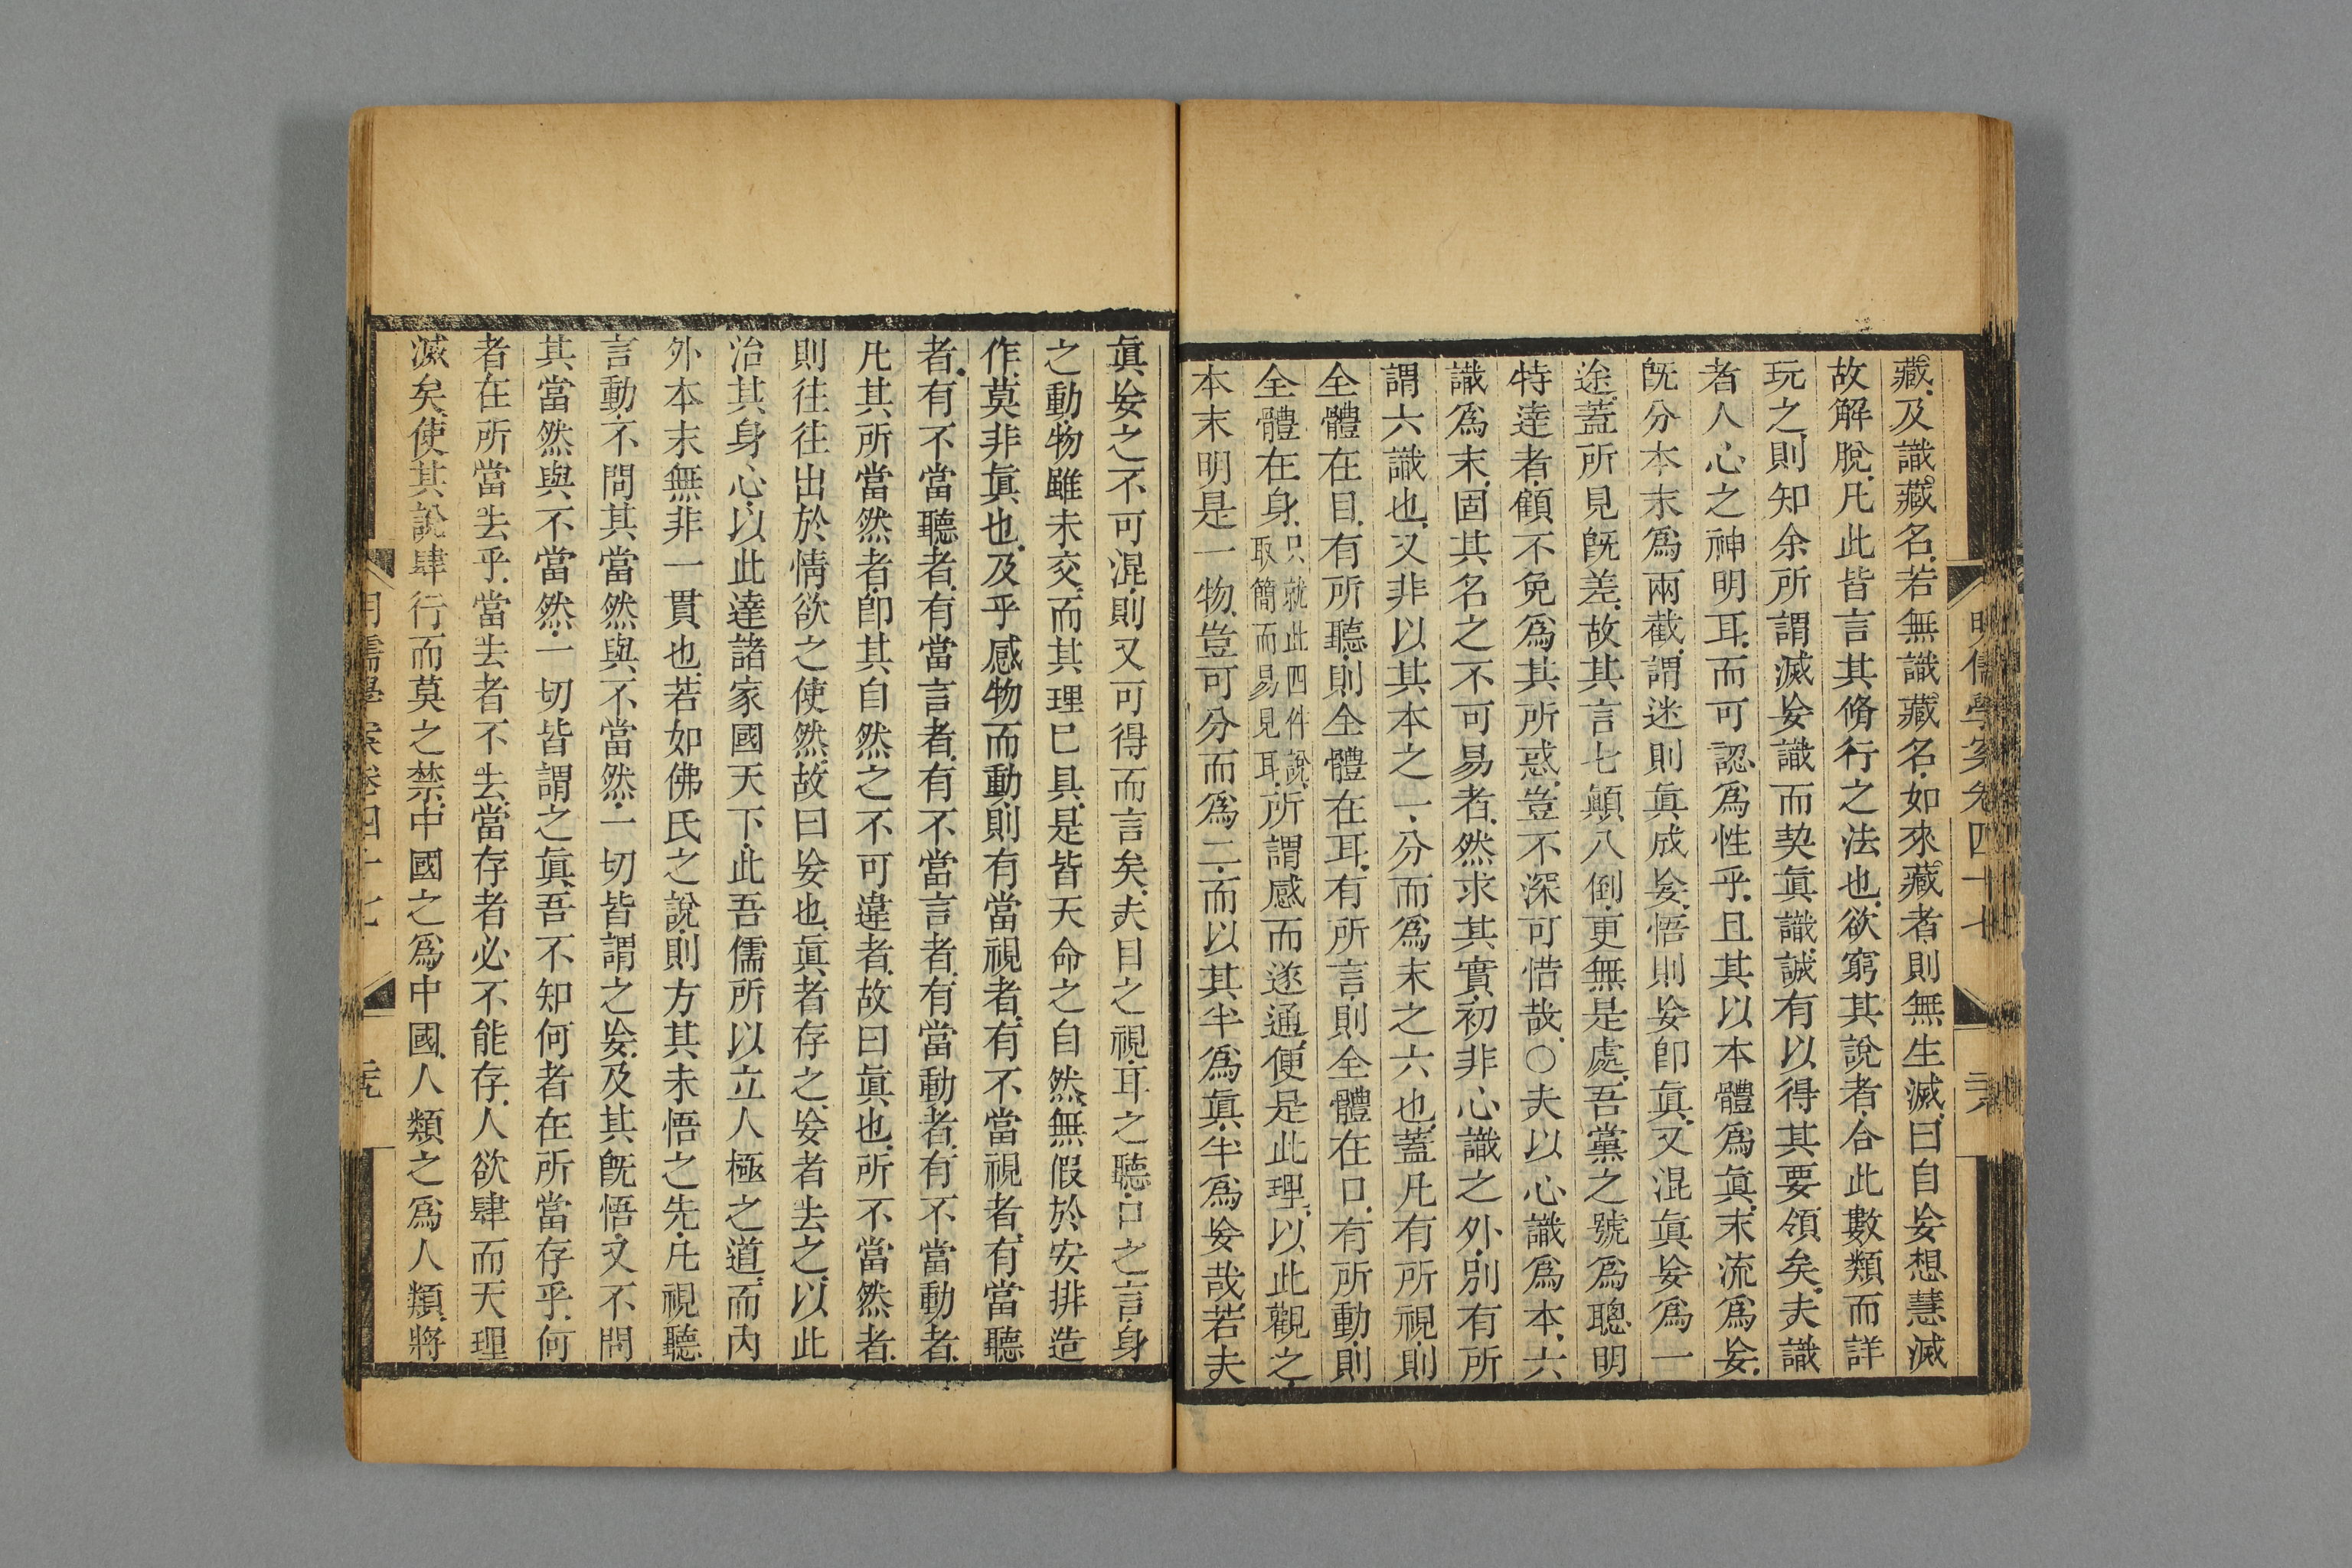 明儒學案卷四十七
藏及識藏名若無識藏名如來藏者則無生滅曰自妄想慧滅
故解脫凡此皆言其脩行之法也欲窮其說者合此數類而詳
玩之則知余所謂滅妄識而契眞識誠有以得其要領矣夫識
者人心之神明耳而可認爲性乎且其以本體爲眞末流爲妄
旣分本末爲兩截謂迷則眞成妄悟則妄卽眞又混眞妄爲一
途蓋所見旣差故其言七顚八倒更無是處吾黨之號爲聰明
特達者顧不免爲其所惑豈不深可惜哉○夫以心識爲本六
識爲末固其名之不可易者然求其實初非心識之外別有所
謂六識也又非以其本之一分而爲末之六也蓋凡有所視則
全體在目有所聽則全體在耳有所言則全體在口有所動則
全體在身只就此四件說取簡而易見耳所謂感而遂通便是此理以此觀之
本末明是一物豈可分而爲二而以其半爲眞半爲妄哉若夫
眞妄之不可混則又可得而言矣夫目之視耳之聽口之言身
之動物雖未交而其理已具是皆天命之自然無假於安排造
作莫非眞也及乎感物而動則有當視者有不當視者有當聽
者有不當聽者有當言者有不當言者有當動者有不當動者
凡其所當然者卽其自然之不可違者故曰眞也所不當然者
則往往出於情欲之使然故曰妄也眞者存之妄者去之以此
治其身心以此達諸家國天下此吾儒所以立人極之道而內
外本末無非一貫也若如佛氏之說則方其未悟之先凡視聽
言動不問其當然與不當然一切皆謂之妄及其旣悟又不問
其當然與不當然一切皆謂之眞吾不知何者在所當存乎何
者在所當去乎當去者不去當存者必不能存人欲肆而天理
滅矣使其說肆行而莫之禁中國之爲中國人類之爲人類將
明儒學案卷四十七